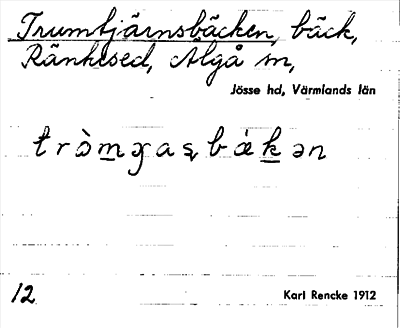 Trumtjärnsbäcken, bäck,
Ränkesed, Älgå sn,
Jösse hd, Värmlands län
12
Karl Rencke 1912